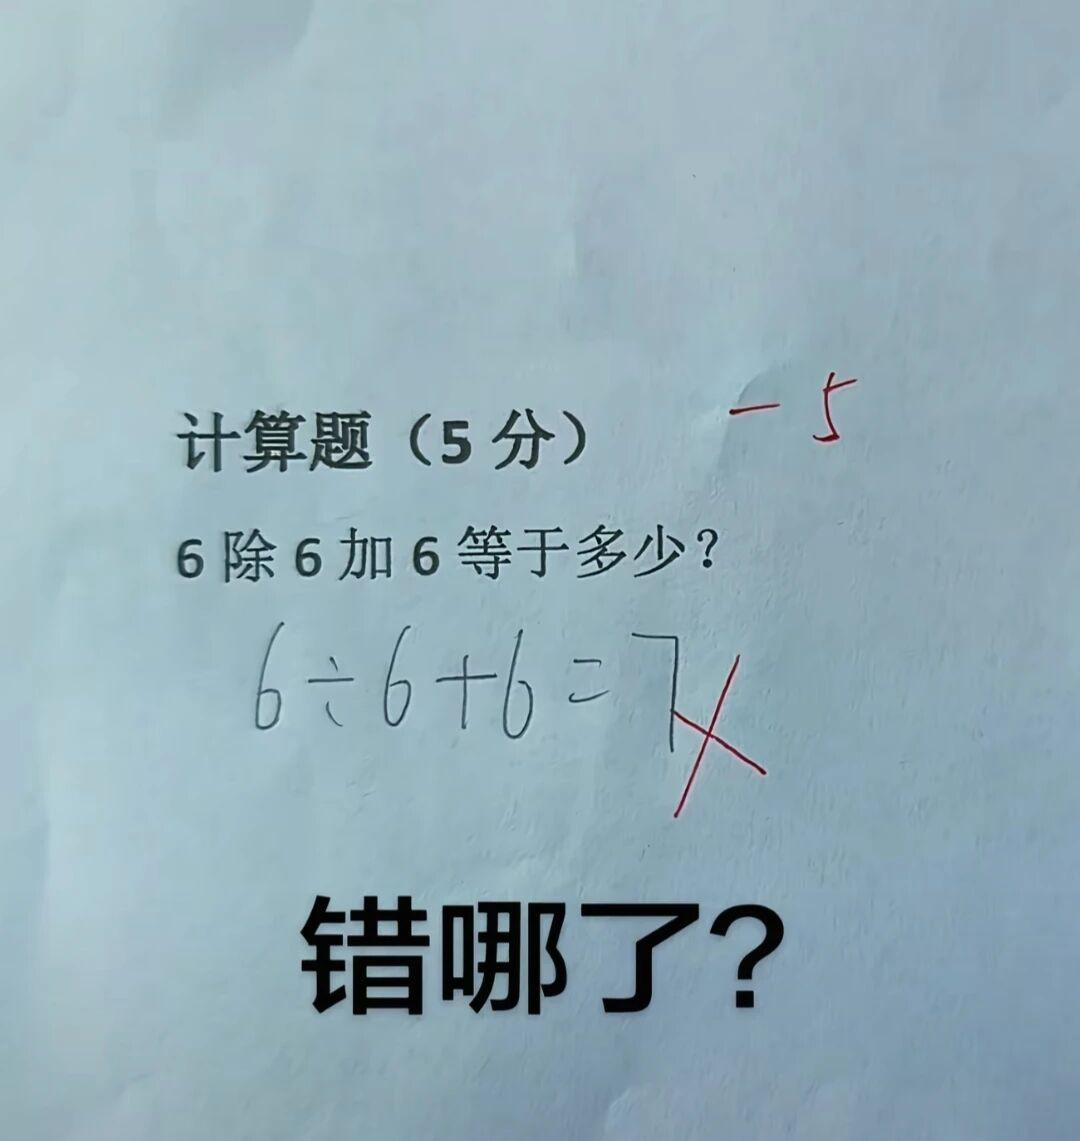 计算题（5 分） -5
6 除 6 加 6 等于多少？
6÷6+6=7
错哪了?